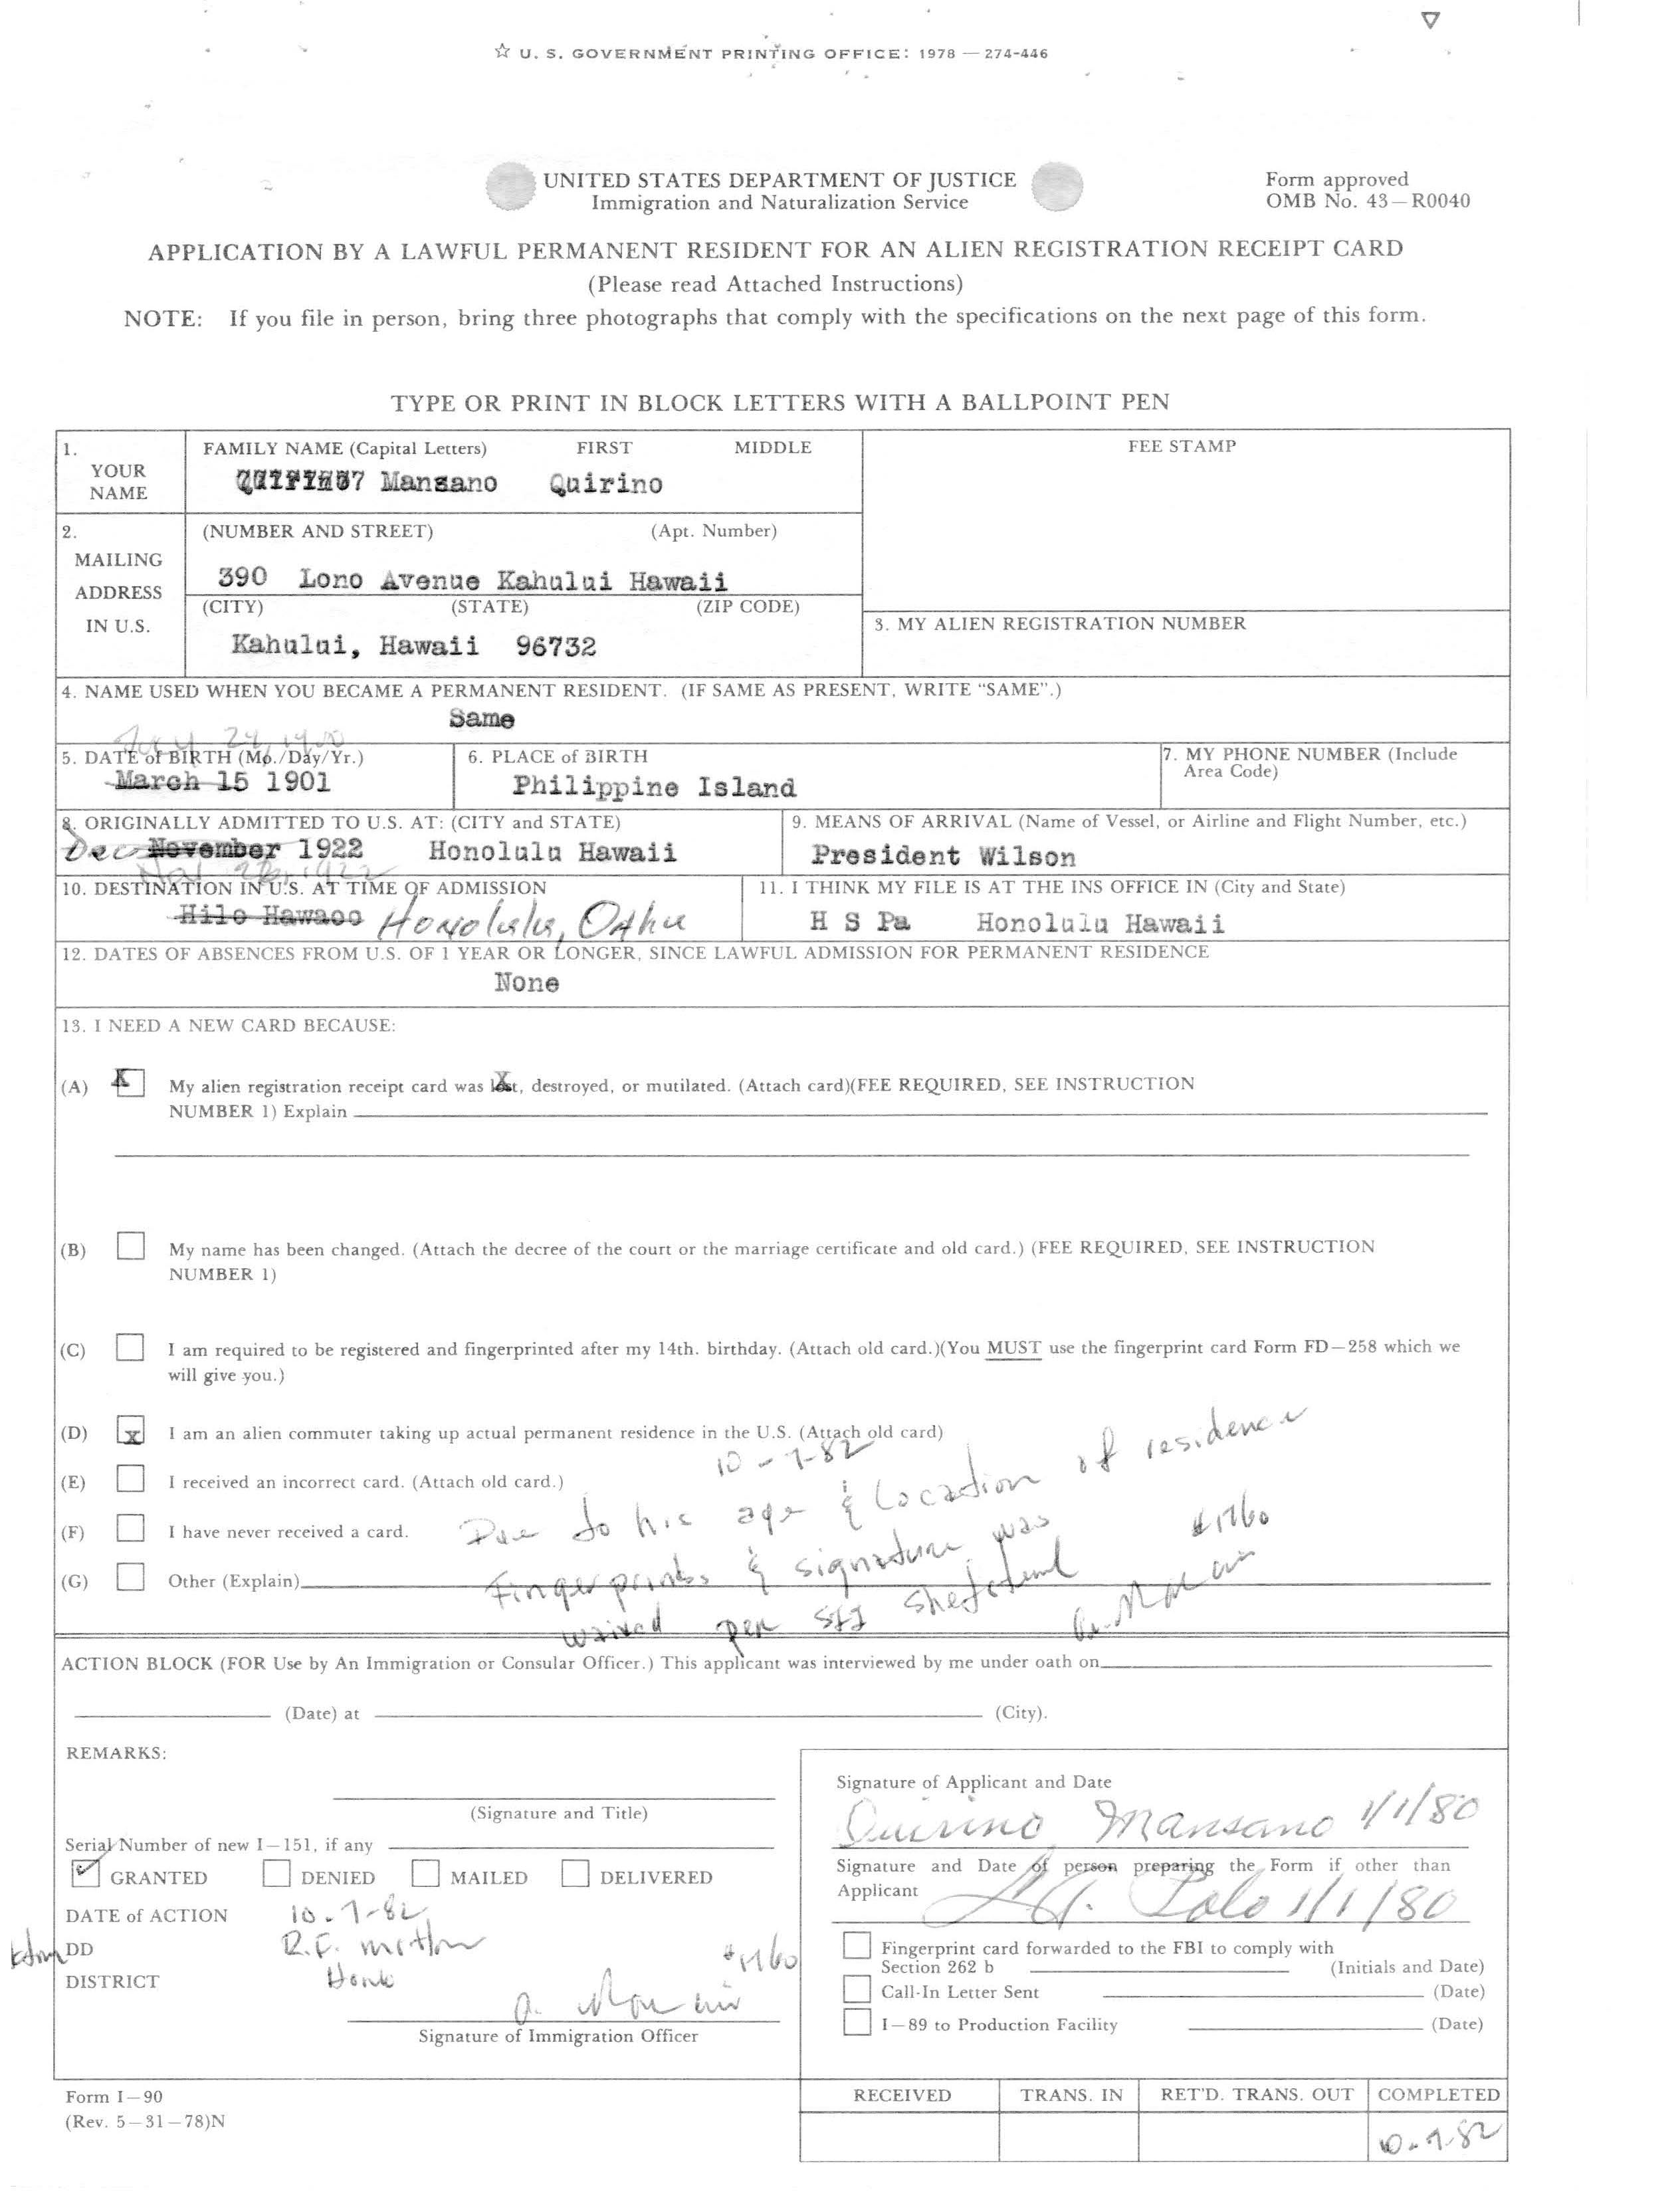 ☆ U. S. GOVERNMENT PRINTING OFFICE: 1978 — 274-446
UNITED STATES DEPARTMENT OF JUSTICE
Immigration and Naturalization Service
Form approved
OMB No. 43—R0040
APPLICATION BY A LAWFUL PERMANENT RESIDENT FOR AN ALIEN REGISTRATION RECEIPT CARD
(Please read Attached Instructions)
NOTE: If you file in person, bring three photographs that comply with the specifications on the next page of this form.
TYPE OR PRINT IN BLOCK LETTERS WITH A BALLPOINT PEN
1. YOUR NAME
FAMILY NAME (Capital Letters) FIRST MIDDLE
Mansano Quirino
FEE STAMP
2. MAILING ADDRESS IN U.S.
(NUMBER AND STREET) (Apt. Number)
390 Lono Avenue Kahului Hawaii
(CITY) (STATE) (ZIP CODE)
Kahului, Hawaii 96732
3. MY ALIEN REGISTRATION NUMBER
4. NAME USED WHEN YOU BECAME A PERMANENT RESIDENT. (IF SAME AS PRESENT, WRITE “SAME”.)
Same
July 24, 1900
5. DATE of BIRTH (Mo./Day/Yr.)
March 15 1901
6. PLACE of BIRTH
Philippine Island
7. MY PHONE NUMBER (Include Area Code)
8. ORIGINALLY ADMITTED TO U.S. AT: (CITY and STATE)
Dec November 1922 Honolulu Hawaii
9. MEANS OF ARRIVAL (Name of Vessel, or Airline and Flight Number, etc.)
President Wilson
1922
10. DESTINATION IN U.S. AT TIME OF ADMISSION
Hilo Hawaoo Honolulu, Oahu
11. I THINK MY FILE IS AT THE INS OFFICE IN (City and State)
H S Pa Honolulu Hawaii
12. DATES OF ABSENCES FROM U.S. OF 1 YEAR OR LONGER, SINCE LAWFUL ADMISSION FOR PERMANENT RESIDENCE
None
13. I NEED A NEW CARD BECAUSE:
(A) X My alien registration receipt card was lost, destroyed, or mutilated. (Attach card)(FEE REQUIRED, SEE INSTRUCTION
NUMBER 1) Explain
(B) My name has been changed. (Attach the decree of the court or the marriage certificate and old card.) (FEE REQUIRED, SEE INSTRUCTION
NUMBER 1)
(C) I am required to be registered and fingerprinted after my 14th. birthday. (Attach old card.)(You MUST use the fingerprint card Form FD—258 which we
will give you.)
(D) x I am an alien commuter taking up actual permanent residence in the U.S. (Attach old card)
10-7-82
(E) I received an incorrect card. (Attach old card.)
(F) I have never received a card.
Due to his age & location of residence
(G) Other (Explain)
fingerprints & signature was
waived per
ACTION BLOCK (FOR Use by An Immigration or Consular Officer.) This applicant was interviewed by me under oath on
(Date) at (City).
REMARKS:
(Signature and Title)
Serial Number of new I—151, if any
GRANTED DENIED MAILED DELIVERED
DATE of ACTION 10-7-82
DD R.F.
DISTRICT
Signature of Immigration Officer
Signature of Applicant and Date
Quirino Mansano 1/1/80
Signature and Date of person preparing the Form if other than
Applicant
Lolo 1/1/80
Fingerprint card forwarded to the FBI to comply with
Section 262 b (Initials and Date)
Call-In Letter Sent (Date)
I—89 to Production Facility (Date)
Form I—90
(Rev. 5—31—78)N
RECEIVED TRANS. IN RET'D. TRANS. OUT COMPLETED
10-7-82